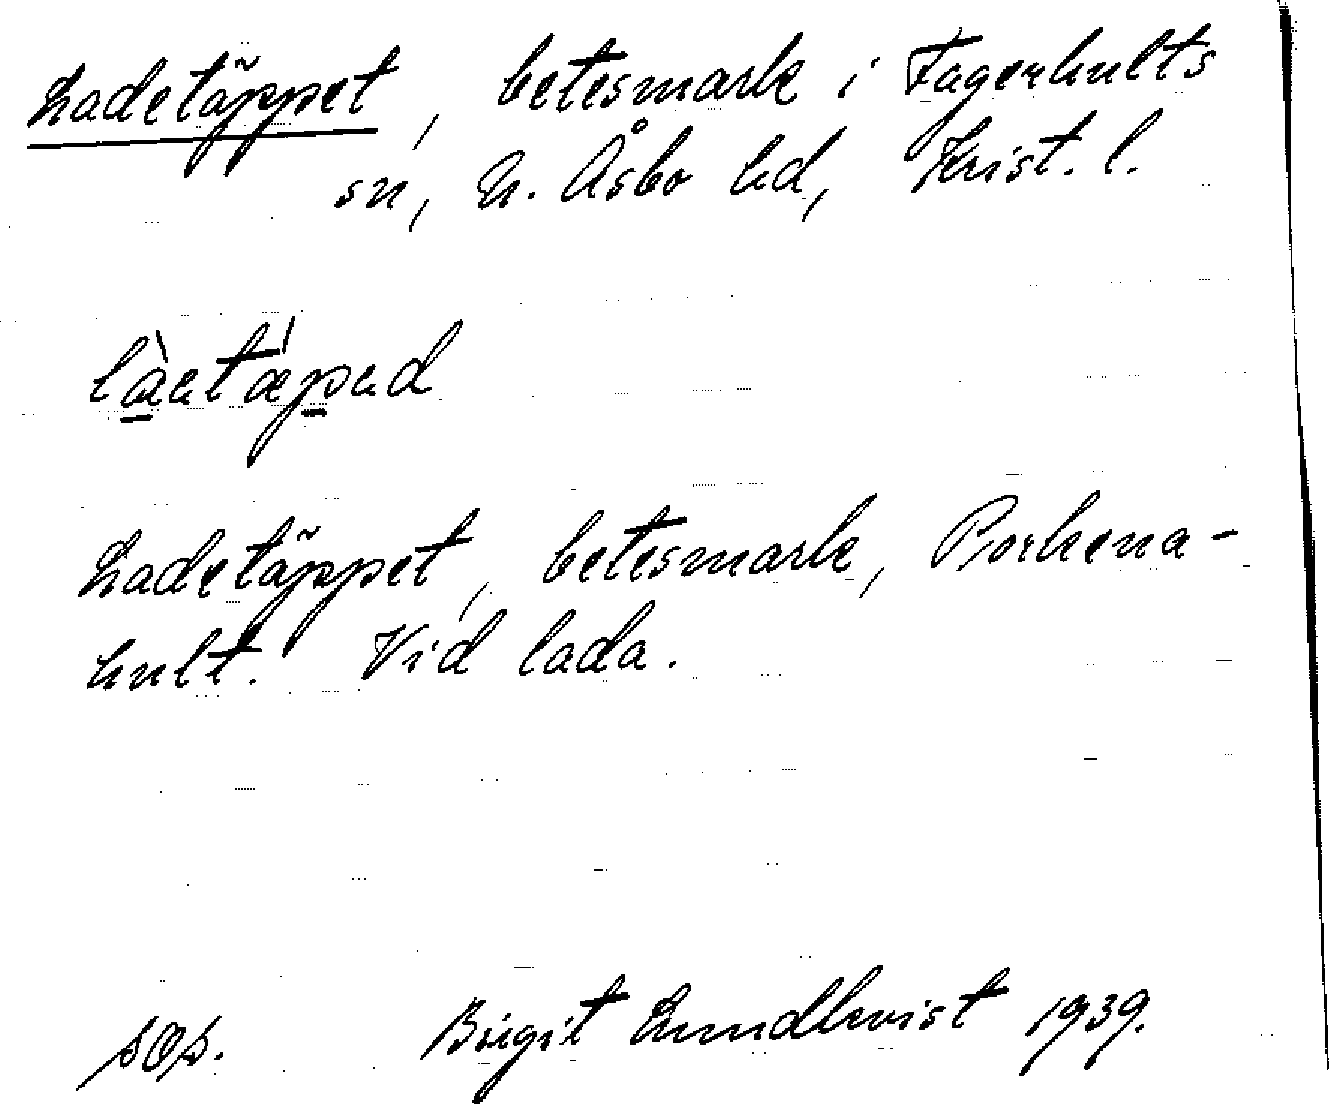 Ladetäppet, betesmark i Fagerhults
sn, N. Åsbo hd, Krist. l.
Ladetäppet, betesmark, Porkena-
hult. Vid lada.
sOs. Birgit Lundkvist 1939.